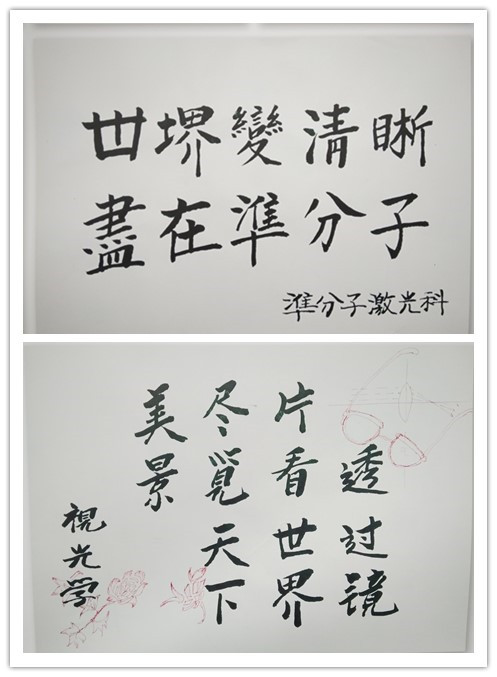 世堺變清晰
盡在準分子
準分子激光科
透过镜
片看世界
尽览天下
美景
視光学